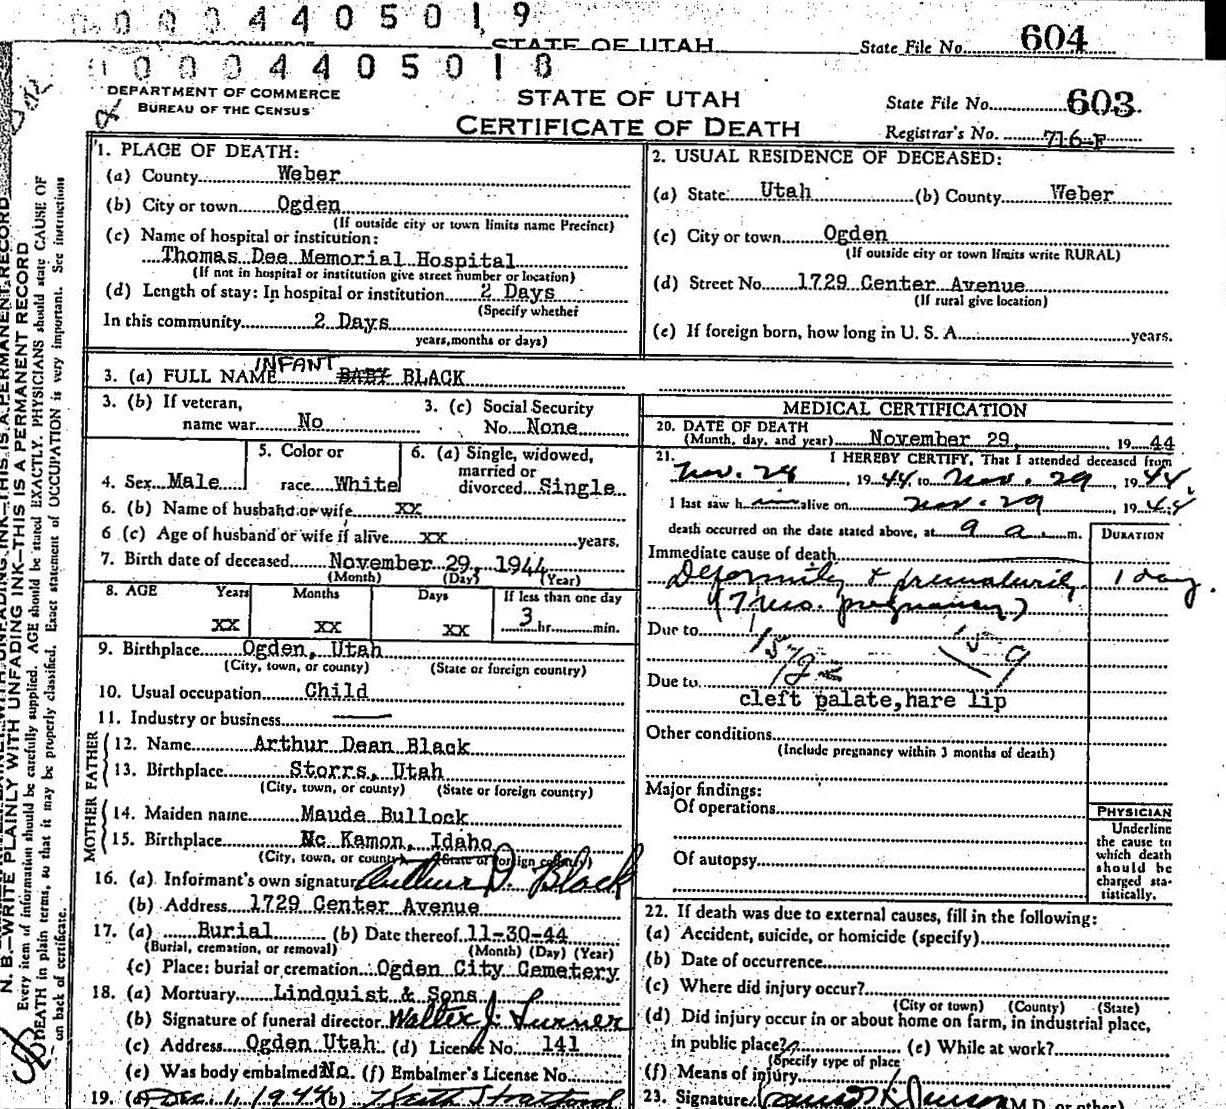 0 0 0 4 4 0 5 0 1 9
STATE OF UTAH State File No. 604
0 0 0 4 4 0 5 0 1 8
DEPARTMENT OF COMMERCE
BUREAU OF THE CENSUS
STATE OF UTAH
CERTIFICATE OF DEATH
State File No. 603
Registrar's No. 716-F
N. B.—WRITE PLAINLY WITH UNFADING INK—THIS IS A PERMANENT RECORD
Every item of information should be carefully supplied. AGE should be stated EXACTLY. PHYSICIANS should state CAUSE OF
DEATH in plain terms, so that it may be properly classified. Exact statement of OCCUPATION is very important. See instructions
on back of certificate.
1. PLACE OF DEATH:
(a) County Weber
(b) City or town Ogden
(If outside city or town limits name Precinct)
(c) Name of hospital or institution:
Thomas Dee Memorial Hospital
(If not in hospital or institution give street number or location)
(d) Length of stay: In hospital or institution 2 Days
(Specify whether
In this community 2 Days
years, months or days)
2. USUAL RESIDENCE OF DECEASED:
(a) State Utah (b) County Weber
(c) City or town Ogden
(If outside city or town limits write RURAL)
(d) Street No. 1729 Center Avenue
(If rural give location)
(e) If foreign born, how long in U. S. A. years.
3. (a) FULL NAME INFANT BABY BLACK
3. (b) If veteran,
name war No
3. (c) Social Security
No. None
4. Sex Male
5. Color or
race White
6. (a) Single, widowed,
married or
divorced Single
6. (b) Name of husband or wife xx
6 (c) Age of husband or wife if alive xx years.
7. Birth date of deceased November 29, 1944
(Month) (Day) (Year)
8. AGE Years Months Days If less than one day
xx xx xx 3 hr. min.
9. Birthplace Ogden, Utah
(City, town, or county) (State or foreign country)
10. Usual occupation Child
11. Industry or business
FATHER
12. Name Arthur Dean Black
13. Birthplace Storrs, Utah
(City, town, or county) (State or foreign country)
MOTHER
14. Maiden name Maude Bullock
15. Birthplace Mc Kamon, Idaho
(City, town, or county) (State or foreign country)
16. (a) Informant's own signature Arthur D. Black
(b) Address 1729 Center Avenue
17. (a) Burial (b) Date thereof 11-30-44
(Burial, cremation, or removal) (Month) (Day) (Year)
(c) Place: burial or cremation Ogden City Cemetery
18. (a) Mortuary Lindquist & Sons
(b) Signature of funeral director Walter J. Turner
(c) Address Ogden Utah (d) License No. 141
(e) Was body embalmed No. (f) Embalmer's License No.
19. (a) Dec 1, 1944 (b)
MEDICAL CERTIFICATION
20. DATE OF DEATH
(Month, day, and year) November 29, 19 44
21. I HEREBY CERTIFY, That I attended deceased from
Nov. 29, 19 44 to Nov. 29 19 44
I last saw h im alive on Nov. 29 19 44
death occurred on the date stated above, at 9 a. m.
DURATION
Immediate cause of death
Deformity & prematurity 1 day.
(7 mo. pregnancy)
Due to 159
Due to
cleft palate,hare lip
Other conditions
(Include pregnancy within 3 months of death)
Major findings:
Of operations
Of autopsy
PHYSICIAN
Underline
the cause to
which death
should be
charged sta-
tistically.
22. If death was due to external causes, fill in the following:
(a) Accident, suicide, or homicide (specify)
(b) Date of occurrence
(c) Where did injury occur?
(City or town) (County) (State)
(d) Did injury occur in or about home on farm, in industrial place,
in public place? (e) While at work?
(Specify type of place
(f) Means of injury
23. Signature (M.D. or other)